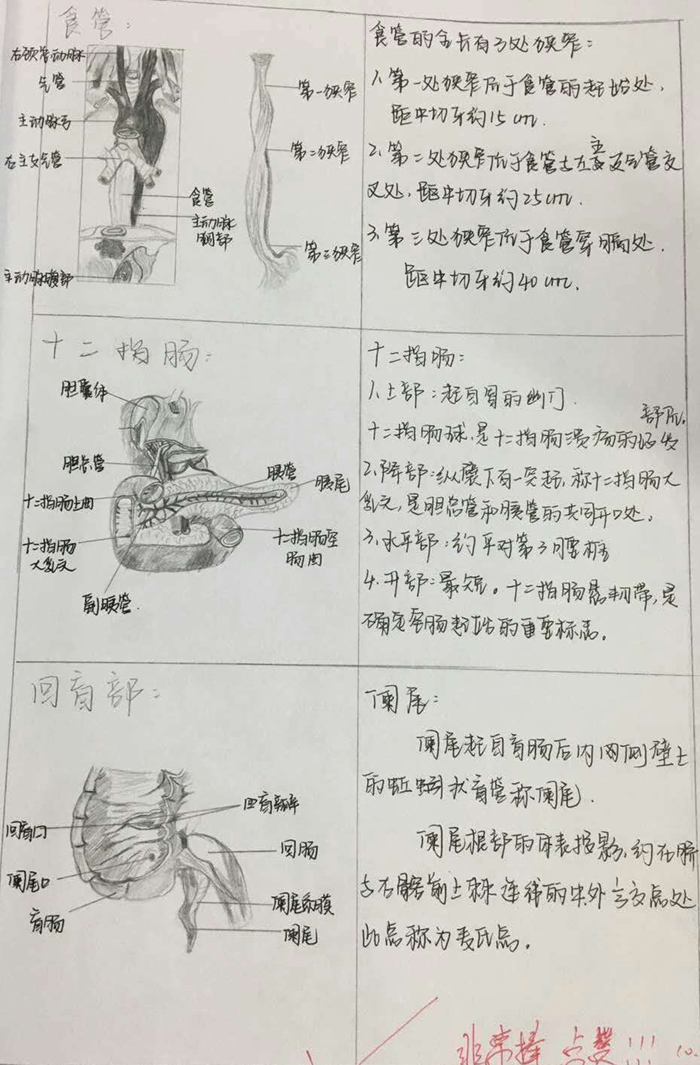 食管：
右颈总动脉
气管
主动脉弓
右主支气管
食管
主动脉
胸部
主动脉腹部
第一狭窄
第二狭窄
第三狭窄
食管的全长有3处狭窄：
1、第一处狭窄位于食管的起始处，
距中切牙约15cm.
2、第二处狭窄位于食管与左主支气管交
叉处，距中切牙约25cm.
3、第三处狭窄位于食管穿膈处．
距中切牙约40cm.
十二指肠：
胆囊体
胆总管
十二指肠上曲
十二指肠
大乳头
副胰管.
胰管
胰尾
十二指肠空
肠曲
十二指肠：
1、上部：起自胃的幽门．
十二指肠球，是十二指肠溃疡的好发
部位．
2、降部：纵襞下有一突起，称十二指肠大
乳头，是胆总管和胰管的共同开口处．
3、水平部：约平对第3腰椎
4、升部：最短。十二指肠悬韧带，是
确定空肠起始的重要标志。
回盲部：
回盲口
阑尾口
盲肠
回盲瓣
回肠
阑尾系膜
阑尾
阑尾：
阑尾起自盲肠后内侧壁上
的蚯蚓状盲管称阑尾．
阑尾根部的体表投影，约在脐
与右髂前上棘连线的中外⅓交点处
此点称为麦氏点。
非常棒 点赞!!!
10.